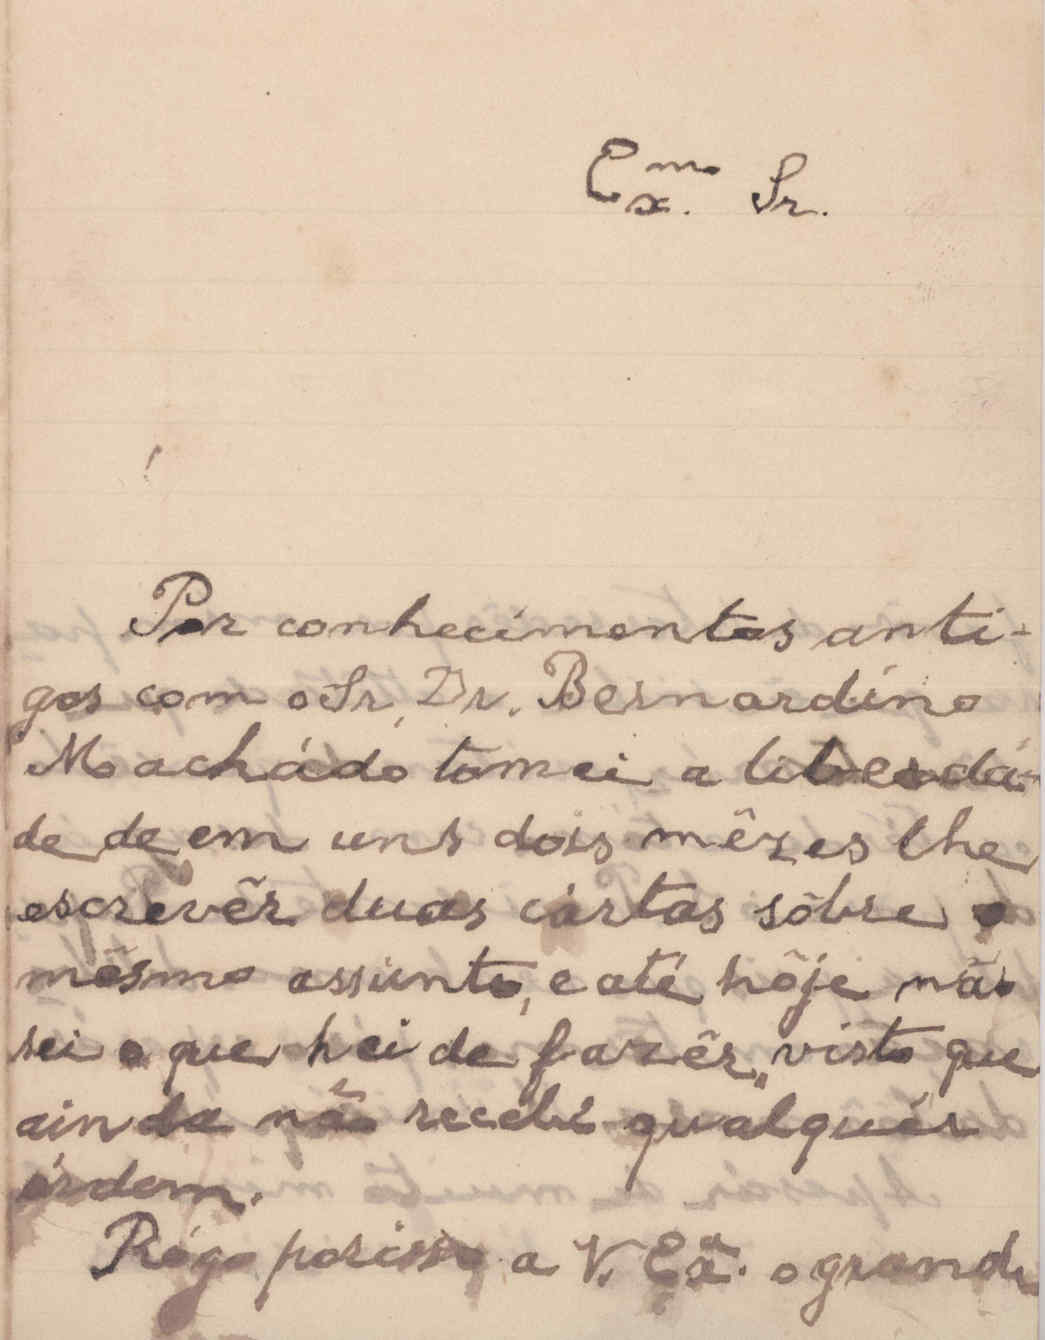 Exmo. Sr.
Por conhecimentos anti-
gos com o Sr. Dr. Bernardino
Machádo tomei a liberdá-
de de em uns dois mêzes lhe
escrevêr duas cártas sôbre o
mêsmo assunto, e até hôje não
sei o que hei de fazêr, visto que
ainda não recebi qualquér
órdem.
Rógo porisso a V. Exª. o grande